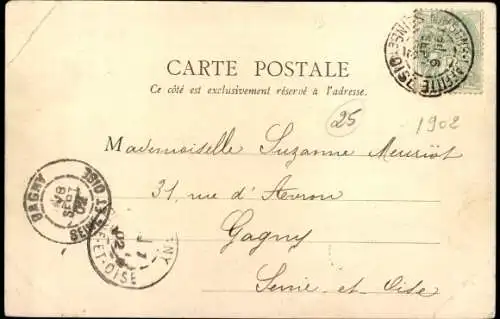 CARTE POSTALE
Ce côté est exclusivement réservé à l'adresse.
25
1902
Mademoiselle Suzanne Meuriöt
31, rue d'Avron
Gagny
Seine et Oise
GAGNY
SEINE-ET-OISE
SEPT
02
ET-OISE